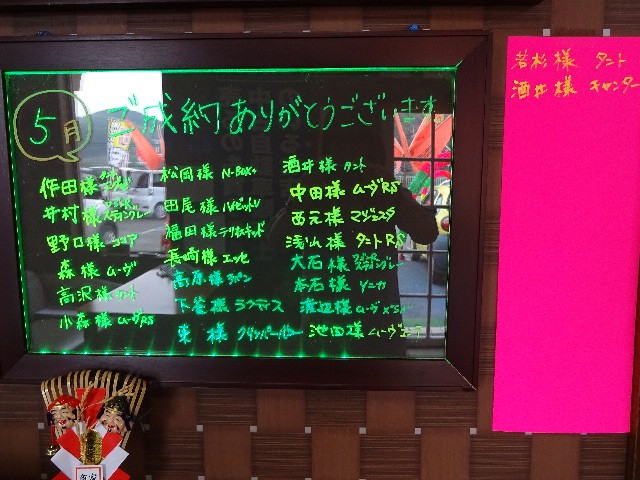 5月
ご成約ありがとうございます
作田様 タント
井村様
野口様 ココア
森様 ムーヴ
高沢様 タント
小森様 ムーヴRS
松岡様 N-BOX+
田尾様 ハイゼットV
福田様
長崎様 エッセ
高原様
下釜様 ラクティス
東様 クリッパーバン
酒井様 タント
中田様 ムーヴRS
西元様 マジェスタ
浅山様 タントRS
大石様
本石様 ソニカ
渡辺様 ムーヴ
池田様 ムーヴ
若杉様 タント
酒井様 キャンター